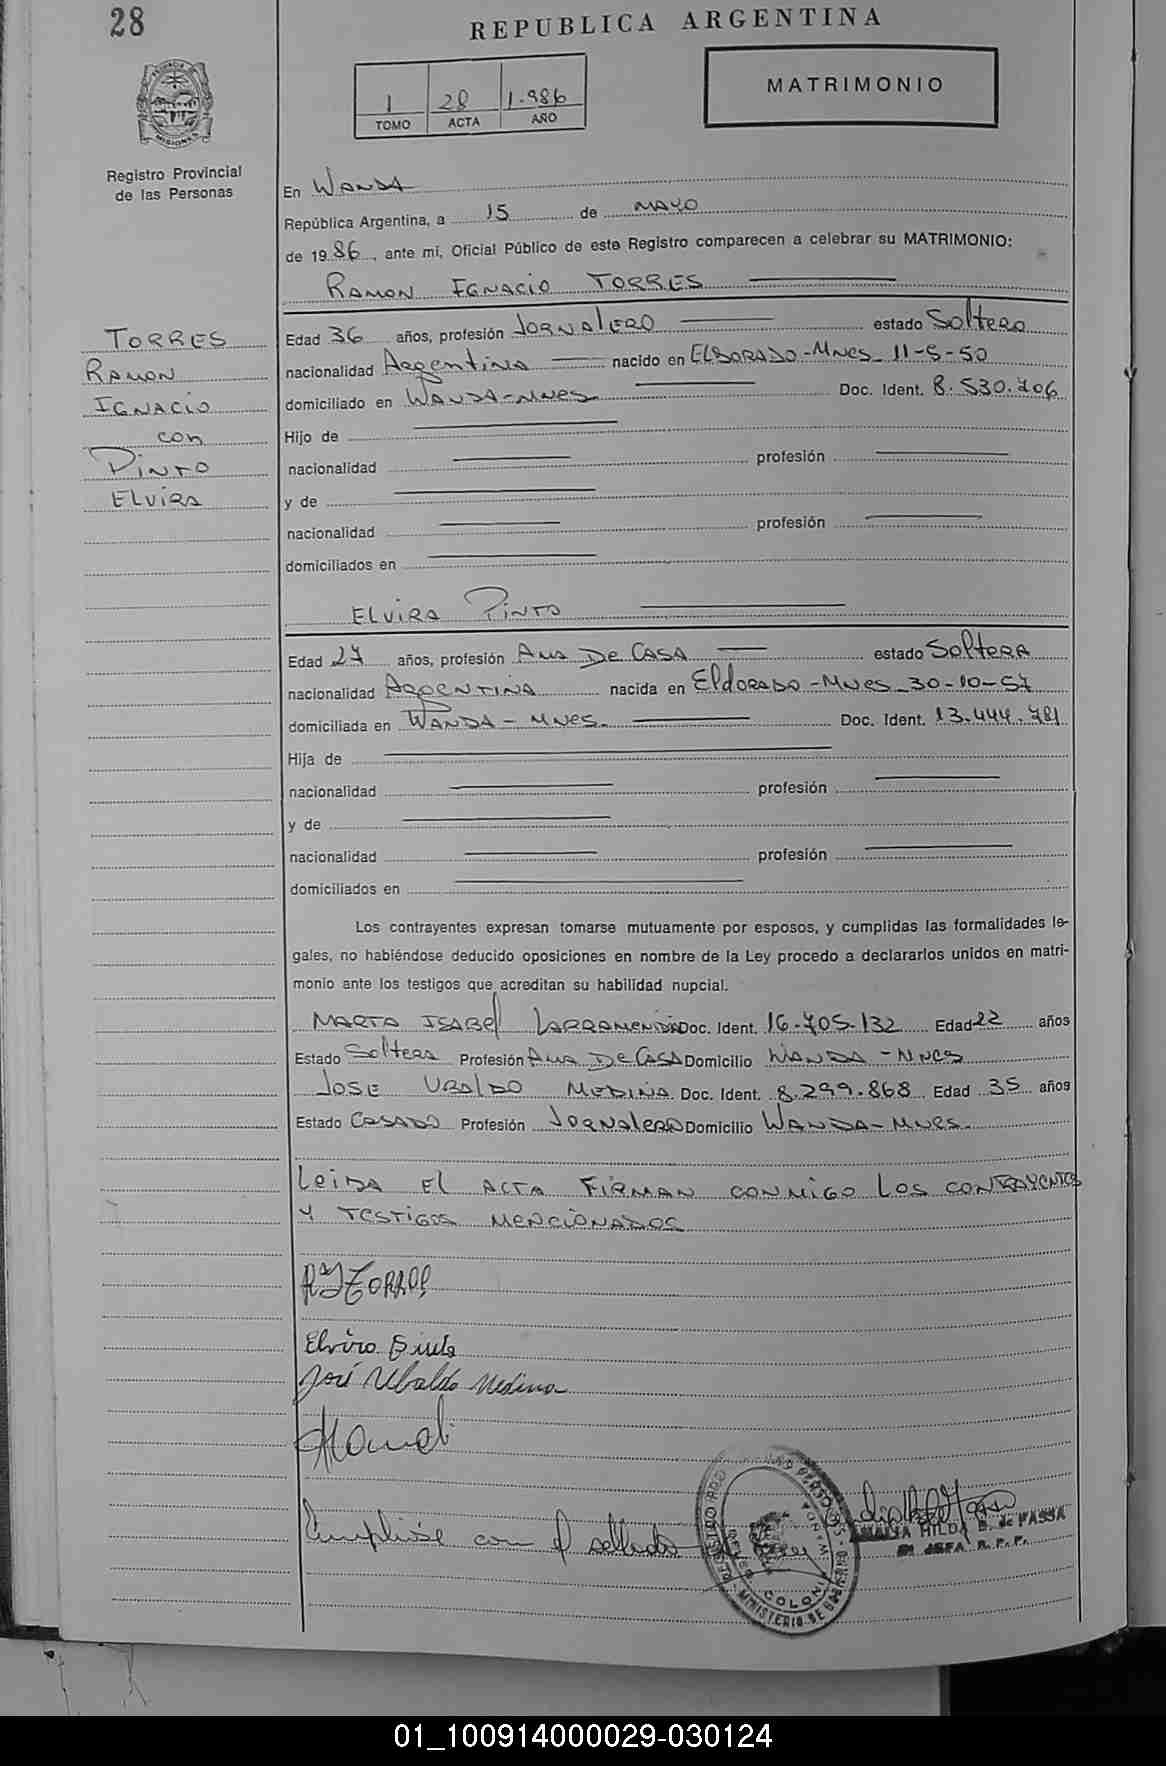 28
REPUBLICA ARGENTINA
1 28 1.986
TOMO ACTA AÑO
MATRIMONIO
PROVINCIA DE MISIONES
Registro Provincial
de las Personas
En WANDA
República Argentina, a 15 de MAYO
de 1986, ante mi, Oficial Público de este Registro comparecen a celebrar su MATRIMONIO:
RAMON IGNACIO TORRES
TORRES
RAMON
IGNACIO
con
PINTO
ELVIRA
Edad 36 años, profesión JORNALERO estado Soltero
nacionalidad Argentina nacido en ELDORADO-MNES- 11-5-50
domiciliado en WANDA-MNES Doc. Ident. 8.530.706
Hijo de
nacionalidad profesión
y de
nacionalidad profesión
domiciliados en
ELVIRA PINTO
Edad 27 años, profesión AMA DE CASA estado SOLTERA
nacionalidad ARGENTINA nacida en ELDORADO-MNES-30-10-57
domiciliada en WANDA-MNES. Doc. Ident. 13.444.781
Hija de
nacionalidad profesión
y de
nacionalidad profesión
domiciliados en
Los contrayentes expresan tomarse mutuamente por esposos, y cumplidas las formalidades le-
gales, no habiéndose deducido oposiciones en nombre de la Ley procedo a declararlos unidos en matri-
monio ante los testigos que acreditan su habilidad nupcial.
MARTA ISABEL LARRAMENDIA Doc. Ident. 16.705.132 Edad 22 años
Estado Soltera Profesión AMA DE CASA Domicilio WANDA-MNES
JOSE UBALDO MEDINA Doc. Ident. 8.299.868 Edad 35 años
Estado CASADO Profesión JORNALERO Domicilio WANDA-MNES.
LEIDA EL ACTA FIRMAN CONMIGO LOS CONTRAYENTES
Y TESTIGOS MENCIONADOS
R Y TORRES
Elvira Pinto
José Ubaldo Medina
Cumplióse con el sellado
COLONIA WANDA
MINISTERIO DE GOBIERNO
MARIA HILDA B. de MASSA
JEFA R. P. P.
01_100914000029-030124